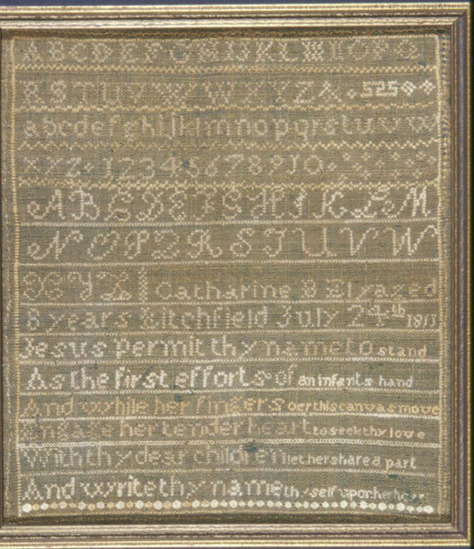 A B C D E F G H I J K L M N O P Q
R S T U V W X Y Z
a b c d e f g h i j k l m n o p q r s t u v w
x y z 1 2 3 4 5 6 7 8 9 10
A B C D E F G H I J K L M
N O P Q R S T U V W
X Y Z Catharine B Ely aged
8 years Litchfield July 24th
Jesus permit thy name to stand
As the first efforts of an infants hand
And while her fingers oer this canvas move
Engage her tender heart to seek thy love
With thy dear children let her share a part
And write thy name thy self upon her heart